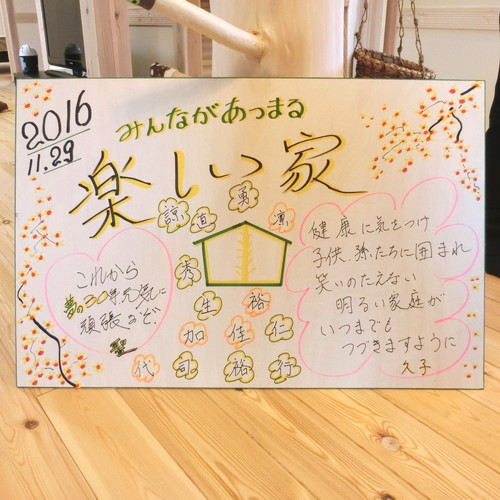 2016
11.29
みんながあつまる
楽しい家
勇
諒 直 凍
秀
生 裕
加 佳 仁
代 司 裕 行
これから
夢の30年元気に
頑張るぞ。
聖
健康に気をつけ
子供、孫たちに囲まれ
笑いのたえない
明るい家庭が
いつまでも
つづきますように
久子